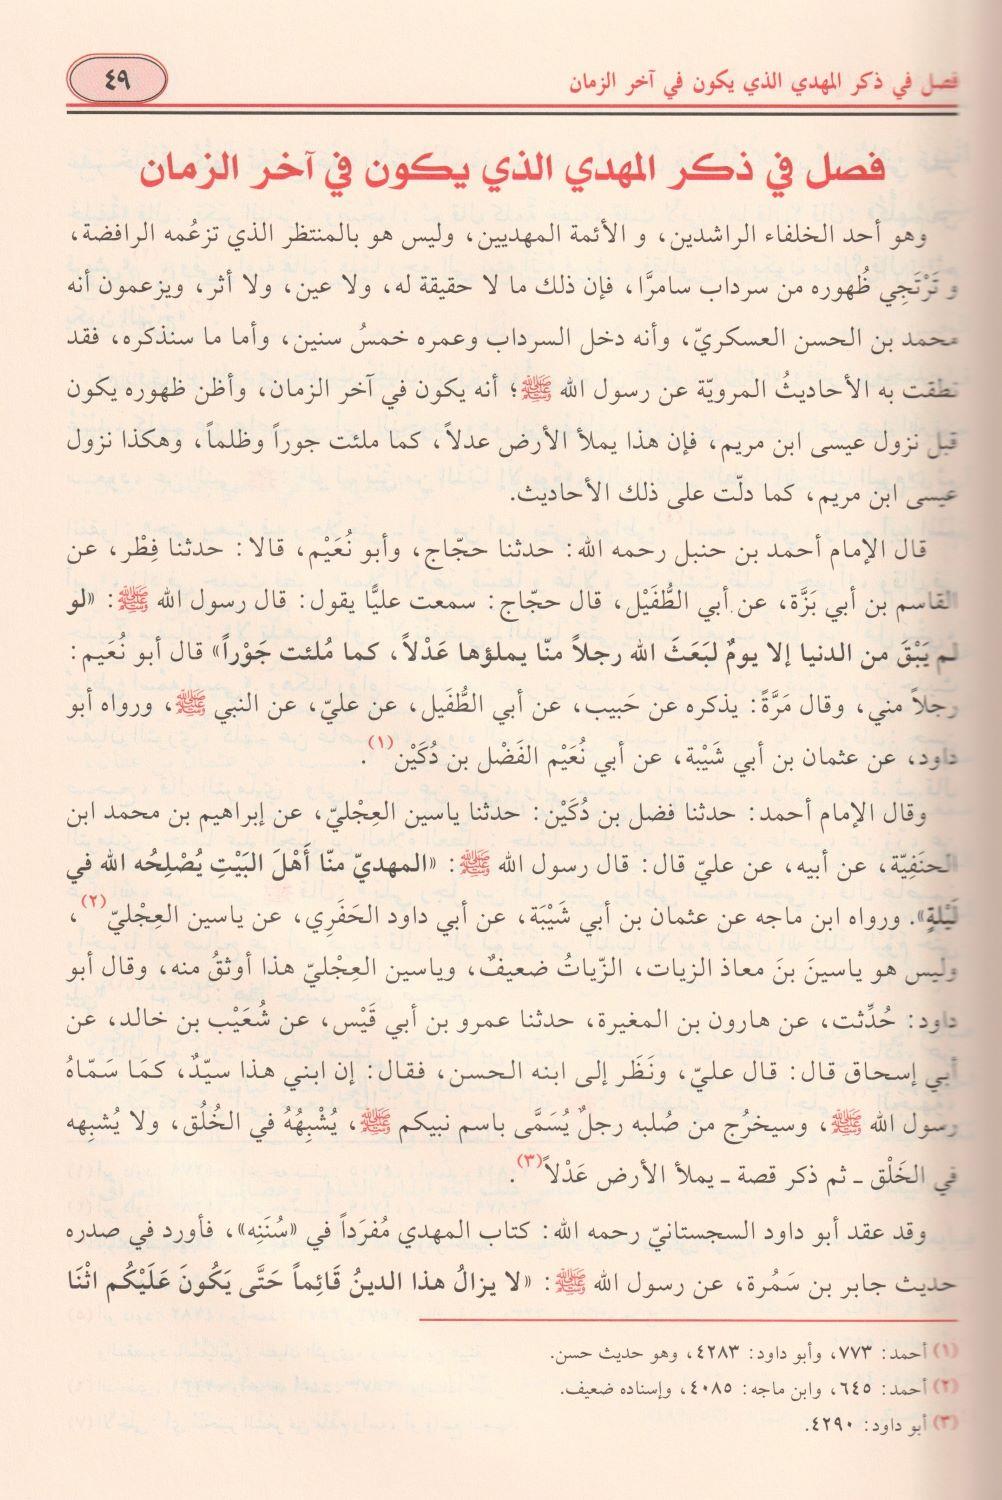 فصل في ذكر المهدي الذي يكون في آخر الزمان
٤٩
فصل في ذكر المهدي الذي يكون في آخر الزمان
وهو أحد الخلفاء الراشدين، و الأئمة المهديين، وليس هو بالمنتظر الذي تزعُمه الرافضة،
و تَرْتَجِي ظُهوره من سرداب سامرَّا، فإن ذلك ما لا حقيقة له، ولا عين، ولا أثر، ويزعمون أنه
محمد بن الحسن العسكريّ، وأنه دخل السرداب وعمره خمسُ سنين، وأما ما سنذكره، فقد
نطقت به الأحاديثُ المرويّة عن رسول الله ﷺ؛ أنه يكون في آخر الزمان، وأظن ظهوره يكون
قبل نزول عيسى ابن مريم، فإن هذا يملأ الأرض عدلاً، كما ملئت جوراً وظلماً، وهكذا نزول
عيسى ابن مريم، كما دلّت على ذلك الأحاديث.
قال الإمام أحمد بن حنبل رحمه الله: حدثنا حجّاج، وأبو نُعَيْم، قالا: حدثنا فِطْر، عن
القاسم بن أبي بَزَّة، عن أبي الطُّفَيْل، قال حجّاج: سمعت عليًّا يقول: قال رسول الله ﷺ: «لو
لم يَبْقَ من الدنيا إلا يومٌ لبَعَثَ الله رجلاً منّا يملؤها عَدْلاً، كما مُلئت جَوْراً» قال أبو نُعَيم:
رجلاً مني، وقال مَرَّةً: يذكره عن حَبيب، عن أبي الطُّفَيل، عن عليّ، عن النبي ﷺ، ورواه أبو
داود، عن عثمان بن أبي شَيْبة، عن أبي نُعَيْم الفَضْل بن دُكَيْن(١).
وقال الإمام أحمد: حدثنا فضل بن دُكَيْن: حدثنا ياسين العِجْليّ، عن إبراهيم بن محمد ابن
الحنَفِيّة، عن أبيه، عن عليّ قال: قال رسول الله ﷺ: «المهديّ منّا أَهْلَ البَيْتِ يُصْلِحُه الله في
لَيْلةٍ». ورواه ابن ماجه عن عثمان بن أبي شَيْبَة، عن أبي داود الحَفَري، عن ياسين العِجْليّ(٢)،
وليس هو ياسينَ بنَ معاذ الزيات، الزّياتُ ضعيفٌ، وياسين العِجْليّ هذا أوثقُ منه، وقال أبو
داود: حُدِّثت، عن هارون بن المغيرة، حدثنا عمرو بن أبي قَيْس، عن شُعَيْب بن خالد، عن
أبي إسحاق قال: قال عليّ، ونَظَر إلى ابنه الحسن، فقال: إن ابني هذا سيّدٌ، كمَا سَمّاهُ
رسول الله ﷺ، وسيخرُج من صُلبه رجلٌ يُسَمَّى باسم نبيكم ﷺ، يُشْبِهُهُ في الخُلُق، ولا يُشبهه
في الخَلْق ـ ثم ذكر قصة ـ يملأ الأرض عَدْلاً(٣).
وقد عقد أبو داود السجستانيّ رحمه الله: كتاب المهدي مُفرَداً في «سُنَنِه»، فأورد في صدره
حديث جابر بن سَمُرة، عن رسول الله ﷺ: «لا يزالُ هذا الدينُ قَائِماً حَتَّى يَكُونَ عَلَيْكُم اثْنَا
(١) أحمد: ٧٧٣، وأبو داود: ٤٢٨٣، وهو حديث حسن.
(٢) أحمد: ٦٤٥، وابن ماجه: ٤٠٨٥، وإسناده ضعيف.
(٣) أبو داود: ٤٢٩٠.